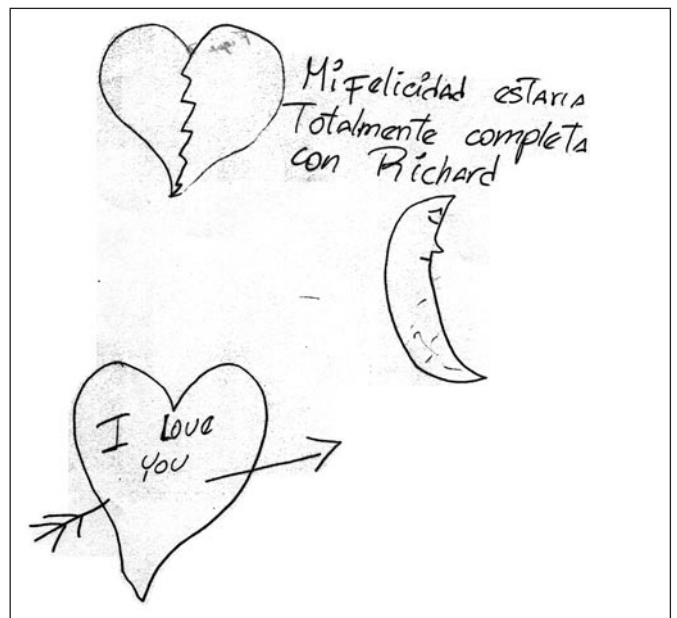 Mi Felicidad estaria
Totalmente completa
con Richard
I Love
you